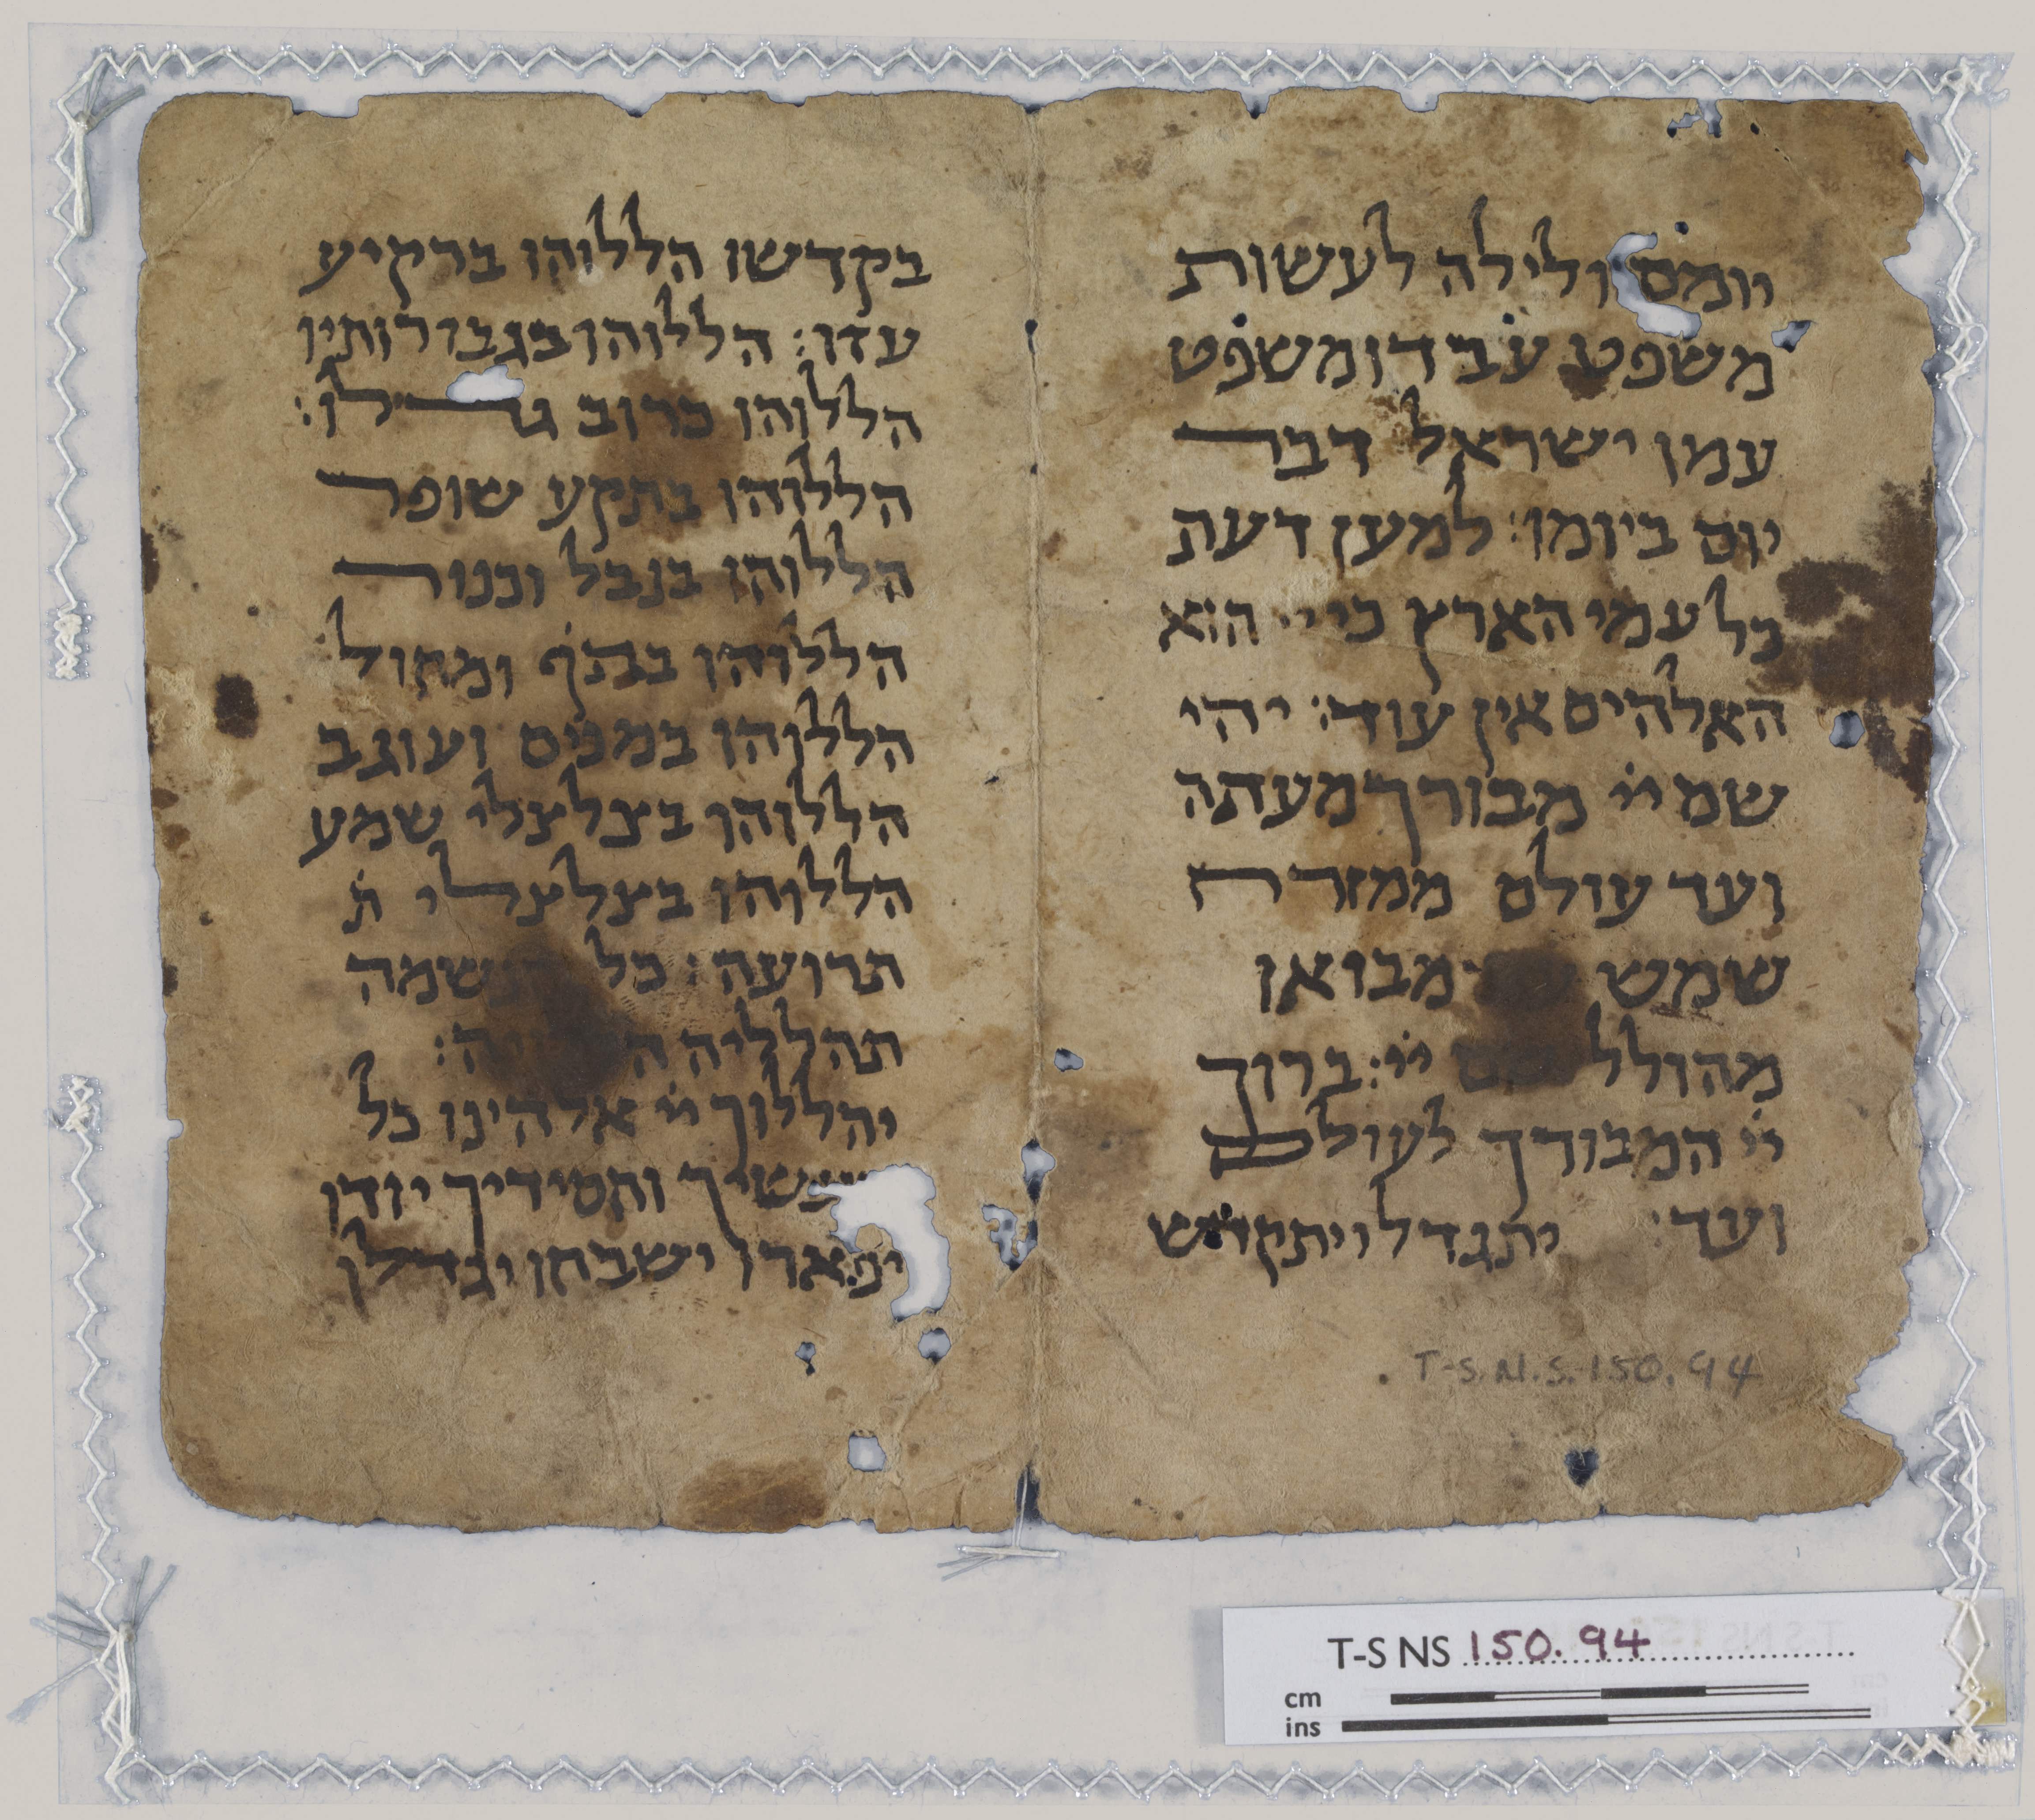 יומם ולילה לעשות
משפט עבדו ומשפט
עמו ישראל דבר
יום ביומו: למען דעת
כל עמי הארץ כי יי הוא
האלהים אין עוד: יהי
שם יי מבורך מעתה
ועד עולם ממזרח
שמש מבואו
מהולל שם יי: ברוך
יי המבורך לעולם
ועד: יתגדל ויתקדש
בקדשו הללוהו ברקיע
עזו: הללוהו בגבורותיו
הללוהו כרוב גדלו:
הללוהו בתקע שופר
הללוהו בנבל וכנור
הללוהו בתף ומחול
הללוהו במנים ועוגב
הללוהו בצלצלי שמע
הללוהו בצלצלי ת
תרועה: כל הנשמה
תהלל יה
יהללוך יי אלהינו כל
מעשיך וחסידיך יודו
יפארו ישבחו יגדלו
T-S.N.S.150.94
T-S NS 150.94
cm
ins